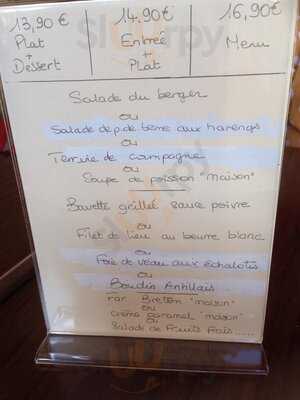 13,90€ 14.90€ 16,90€
Plat Entrée Menu
+ +
Dessert Plat
Salade du berger
ou
Salade de p. de terre aux harengs
ou
Terrine de campagne
ou
Soupe de poisson "maison"
Bavette grillée sauce poivre
ou
Filet de lieu au beurre blanc
ou
Foie de veau aux échalotes
ou
Boudin Antillais
Far Breton "maison"
ou
Crème caramel "maison"
ou
Salade de fruits frais .....